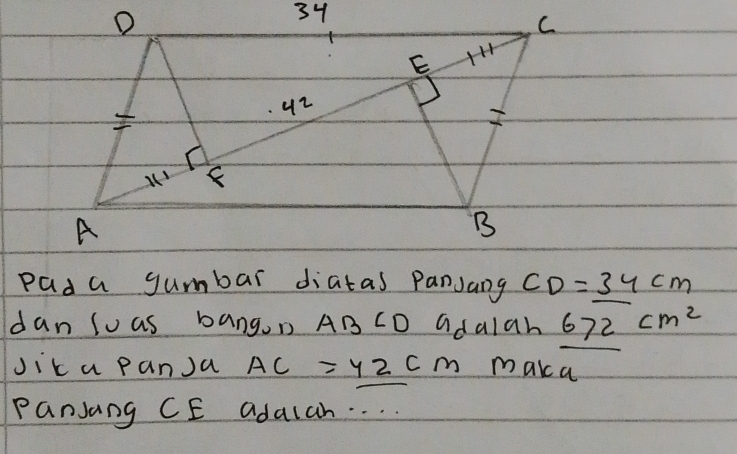 34
D C
E
.42
F
A B
Pada gambar diatas Panjang CD = 34 cm
dan luas bangun ABCD adalah 672 cm²
Jika Panja AC = 42 cm maka
Panjang CE adalah ....